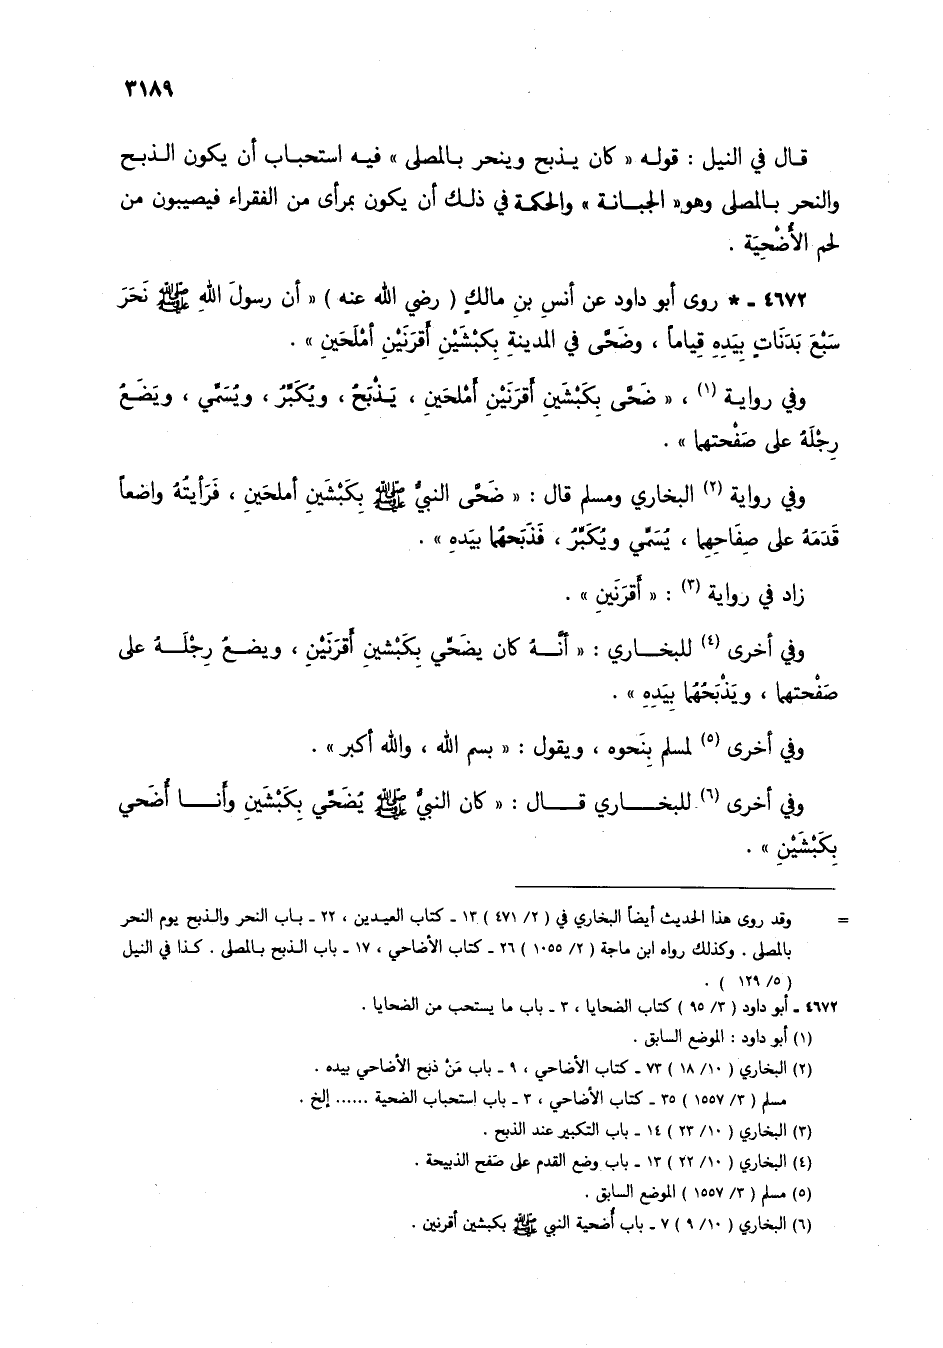 ٣١٨٩
قال في النيل : قوله « كان يذبح وينحر بالمصلى » فيه استحباب أن يكون الذبح
والنحر بالمصلى وهو« الجبانة » والحكمة في ذلك أن يكون بمرأى من الفقراء فيصيبون من
لحم الأُضْحِيَة .
٤٦٧٢ ـ * روى أبو داود عن أنسِ بنِ مالكٍ ( رضي الله عنه ) « أن رسولَ اللهِ ﷺ نَحَرَ
سَبْعَ بَدَنَاتٍ بِيَدِهِ قِياماً ، وضَحَّى في المدينةِ بِكَبْشَيْنِ أَقرَنَيْنِ أَمْلَحَينِ » .
وفي روايـة (١) ، « ضَحَّى بِكَبْشَينِ أَقرَنَيْنِ أَمْلحَينِ ، يَـذْبَحُ ، ويُكَبِّرُ ، ويُسَمِّي ، ويَضَـعُ
رِجْلَهُ على صَفْحتهما » .
وفي رواية (٢) البخاري ومسلم قال : « ضَحَّى النبيُّ ﷺ بِكَبْشَينِ أملحَينِ ، فَرَأيتُهُ واضعاً
قَدَمَهُ على صِفَاحِهما ، يُسَمِّي ويُكَبِّرُ ، فَذَبَحهُما بيَدهِ » .
زاد في رواية (٣) : « أَقرَنَينِ » .
وفي أخرى (٤) للبخـــاري : « أنَّـــهُ كان يضَحِّي بِكَبْشينِ أَقرَنَيْنِ ، ويضـعُ رِجْلَـــهُ على
صَفْحتهما ، ويَذْبَحُهُما بِيَدِهِ » .
وفي أخرى (٥) لمسلم بِنَحوه ، ويقول : « بسم الله ، والله أكبر » .
وفي أخرى (٦) للبخـــــاري قـــــال : « كان النبيُّ ﷺ يُضَحِّي بِكَبْشَينِ وأنـــــا أُضَحي
بِكَبْشَيْنِ » .
= وقد روى هذا الحديث أيضاً البخاري في ( ٢/ ٤٧١ ) ١٣ ـ كتاب العيدين ، ٢٢ ـ باب النحر والذبح يوم النحر
بالمصلى . وكذلك رواه ابن ماجة ( ٢/ ١٠٥٥ ) ٢٦ ـ كتاب الأضاحي ، ١٧ ـ باب الذبح بالمصلى . كذا في النيل
( ٥/ ١٢٩ ) .
٤٦٧٢ ـ أبو داود ( ٣/ ٩٥ ) كتاب الضحايا ، ٣ ـ باب ما يستحب من الضحايا .
(١) أبو داود : الموضع السابق .
(٢) البخاري ( ١٠/ ١٨ ) ٧٣ ـ كتاب الأضاحي ، ٩ ـ باب مَنْ ذبَح الأضاحي بيده .
مسلم ( ٣/ ١٥٥٧ ) ٣٥ ـ كتاب الأضاحي ، ٣ ـ باب استحباب الضحية ...... إلخ .
(٣) البخاري ( ١٠/ ٢٣ ) ١٤ ـ باب التكبير عند الذبح .
(٤) البخاري ( ١٠/ ٢٢ ) ١٣ ـ باب وضع القدم على صَفح الذبيحة .
(٥) مسلم ( ٣/ ١٥٥٧ ) الموضع السابق .
(٦) البخاري ( ١٠/ ٩ ) ٧ ـ باب أُضحية النبي ﷺ بكبشين أقرنين .